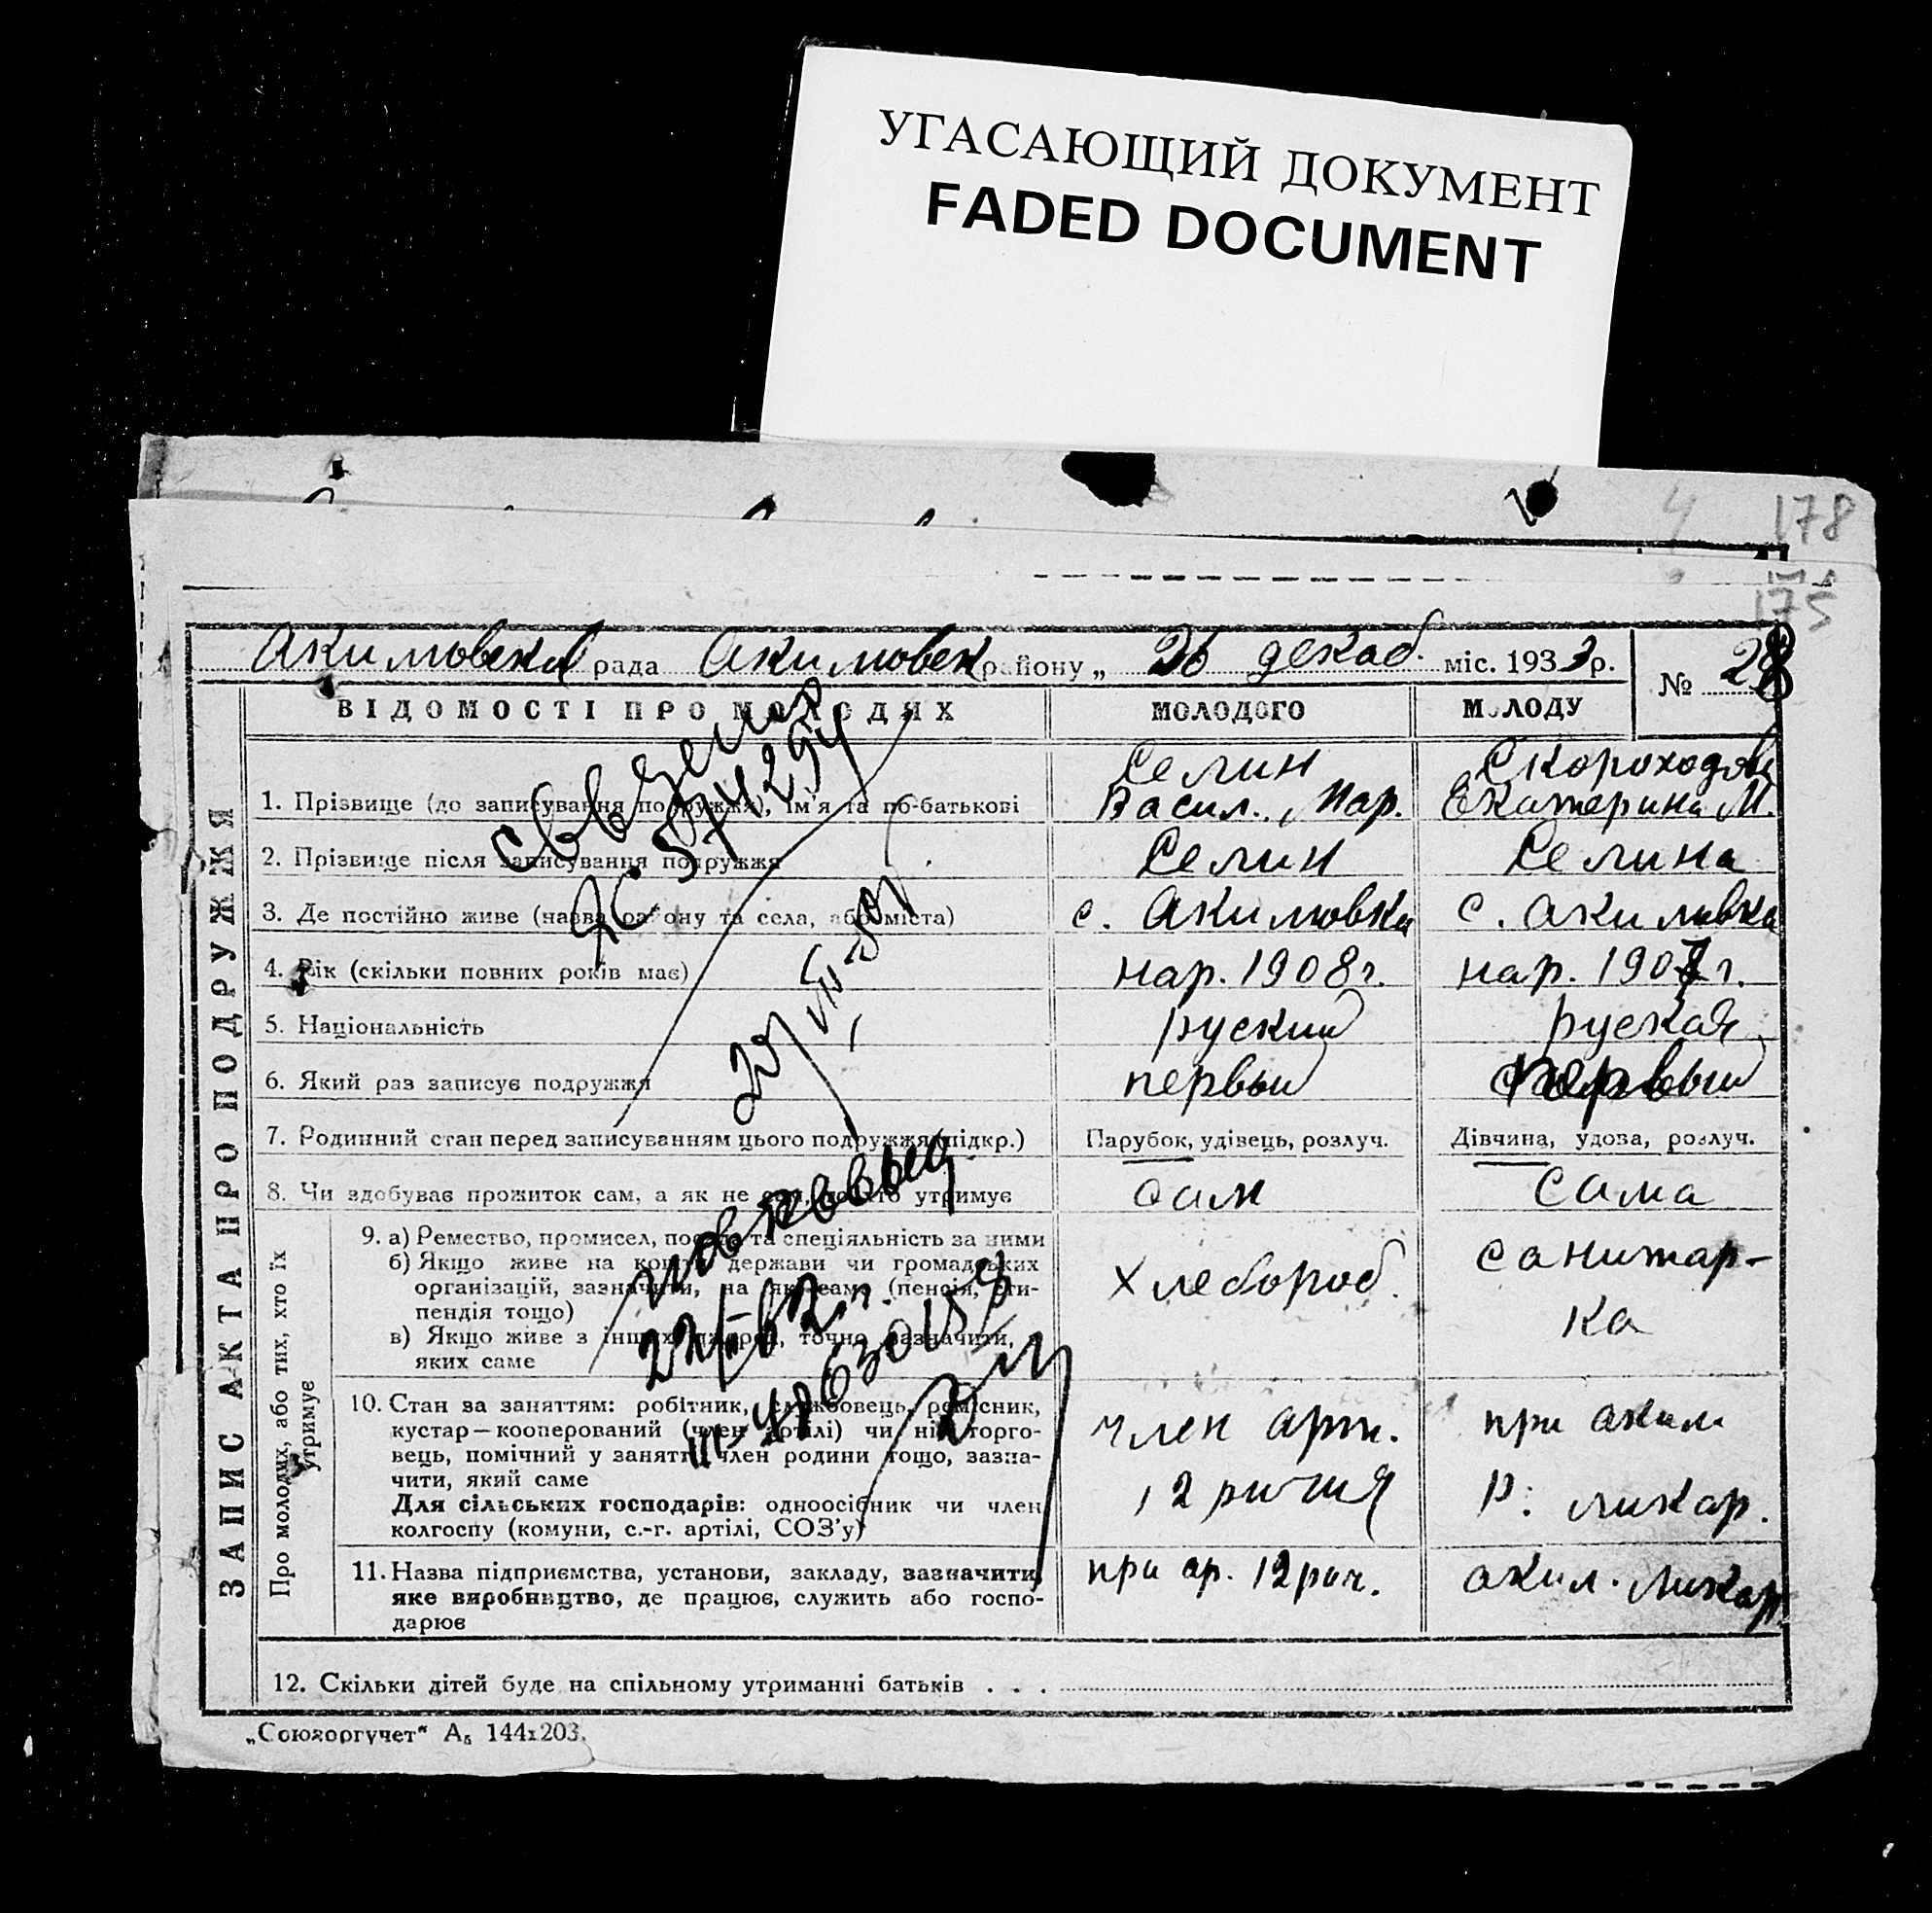 УГАСАЮЩИЙ ДОКУМЕНТ
FADED DOCUMENT
178
175
Акимовска рада Акимовск району „ 26 декаб. міс. 1933 р.
№ 28
ВІДОМОСТІ ПРО МОЛОДЯХ
МОЛОДОГО
МОЛОДУ
ЗАПИС АКТА ПРО ПОДРУЖЖЯ
1. Прізвище (до записування подружжя), ім'я та по-батькові
Селин
Васил. Мар.
Скороходов
Екатерина М.
2. Прізвище після записування подружжя
Селин
Селина
3. Де постійно живе (назва району та села, або міста)
с. Акимовка
с. Акимовка
4. Вік (скільки повних років має)
нар. 1908 г.
нар. 1907 г.
5. Національність
руский
руская
6. Який раз записує подружжя
первый
первый
7. Родинний стан перед записуванням цього подружжя (підкр.)
Парубок, удівець, розлуч.
Дівчина, удова, розлуч.
8. Чи здобуває прожиток сам, а як не сам, то хто утримує
сам
сама
Про молодих, або тих, хто їх
утримує
9. а) Ремество, промисел, посада та спеціяльність за ними
б) Якщо живе на кошти держави чи громадських
організацій, зазначити, на які саме (пенсія, сти-
пендія тощо)
в) Якщо живе з інших джерел, точно зазначити, з
яких саме
хлебороб.
санитар-
ка
10. Стан за заняттям: робітник, службовець, ремісник,
кустар—кооперований (член артілі) чи ні, торго-
вець, помічний у занятті член родини тощо, зазна-
чити, який саме
Для сільських господарів: одноосібник чи член
колгоспу (комуни, с.-г. артілі, СОЗ'у)
член арт.
12 ричия
при аким
Р. ликар.
11. Назва підприємства, установи, закладу, зазначити,
яке виробництво, де працює, служить або госпо-
дарює
при ар. 12 рич.
аким. ликар.
12. Скільки дітей буде на спільному утриманні батьків . . .
„Союзоргучет" А₅ 144х203.